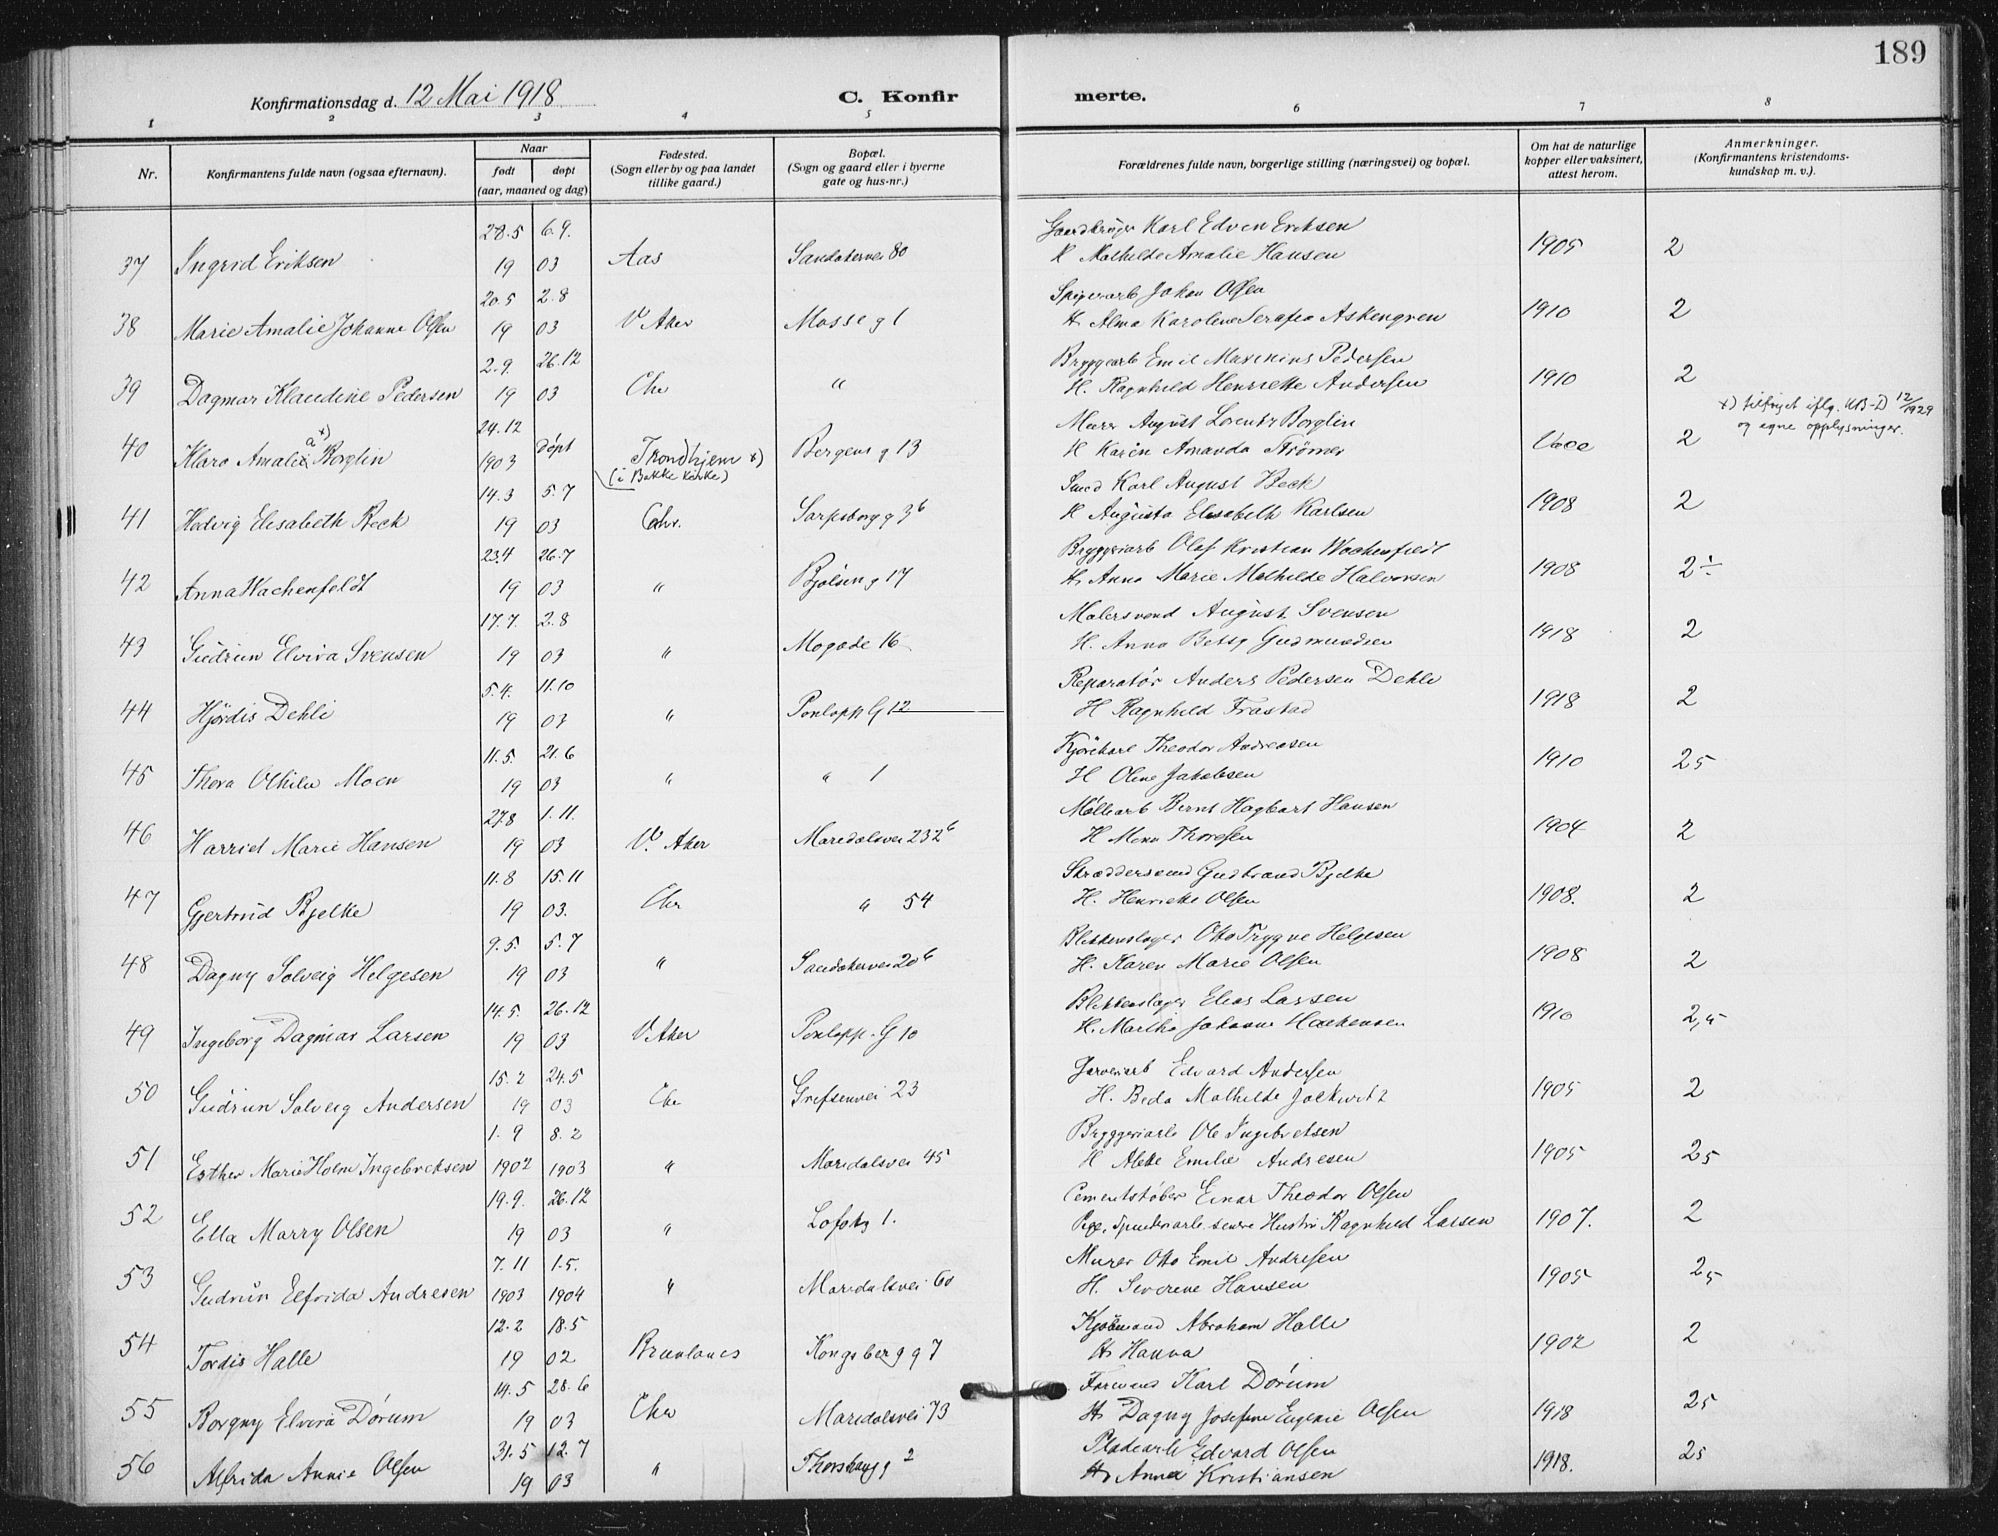 189
Konfirmationsdag d. 12 Mai 1918. C. Konfir merte.
1 2 3 4 5 6 7 8
Nr. Konfirmantens fulde navn (ogsaa efternavn). Naar født døpt (aar, maaned og dag) Fødested. (Sogn eller by og paa landet tillike gaard.) Bopæl. (Sogn og gaard eller i byerne gate og hus-nr.) Forældrenes fulde navn, borgerlige stilling (næringsvei) og bopæl. Om hat de naturlige kopper eller vaksinert, attest herom. Anmerkninger. (Konfirmantens kristendomskundskap m. v.).
28.5 6.9. Karl Edvin Eriksen
37 Ingrid Eriksen 19 03 Aas Sandakervei 80 H Mathilde Amalie Hansen 1905 2
20.5 2.8 Johan Olsen
38 Marie Amalie Johanne Olsen 19 03 V Aker Mosse g 1 H. Alma Karoline Serafia Askengren 1910 2
2.9. 26.12 Bryggearb Emil Marinius Pedersen
39 Dagmar Klaudine Pedersen 19 03 Chr " H. Ragnhild Henriette Andersen 1910 2
x) tilføiet iflg. KB-D 12/1929 og egne opplysninger.
24.12 døpt Murer August Lorentz Borglin
40 Klara Amalia x) Borglin 1903 Trondhjem x) (i Bakke kirke) Bergens g 13 H Karen Amanda Strömer Vacc 2
14.3 5.7 Smed Karl August Beck
41 Hedvig Elisabeth Beck 19 03 Chr. Sarpsborg g 3 b H Augusta Elisabeth Karlsen 1908 2
23.4 26.7 Bryggeriarb Olaf Kristian Wachenfeldt
42 Anna Wachenfeldt 19 03 " Bjølsen g 17 H. Anna Marie Mathilde Halvorsen 1908 2÷
17.7. 2.8 Malersvend August Svensen
43 Gudrun Elvira Svensen 19 03 " Mogade 16 H. Anna Betsy Gudmundsen 1918 2
5.4. 11.10 Reparatör Anders Pedersen Dehli
44 Hjørdis Dehli 19 03 " Pontopp G 12 H Ragnhild Frastad 1918 2
11.5. 21.6 Kjörekarl Theodor Andreasen
45 Thora Othilie Moen 19 03 " " 1 H Oline Jakobsen 1910 25
27.8 1.11. Møllearb Bernt Hagbart Hansen
46 Harriet Marie Hansen 19 03 V. Aker Maridalsvei 232 b H Mena Thoresen 1904 2
11.8 15.11 Skræddersvend Gudbrand Bjelke
47 Gjertrud Bjelke 19 03. Chr " 54 H. Henriette Olsen 1908. 2
9.5. 5.7 Blikkenslager Otto Trygve Helgesen
48 Dagny Solveig Helgesen 19 03 " Sandakervei 20 b H. Karen Marie Olsen 1908 2
14.5. 26.12 Blikkenslager Elias Larsen
49 Ingeborg Dagmar Larsen 19 03 V Aker Pontopp. G 10 H. Martha Johanne Haakensen 1910 2,5
15.2 24.5 Edvard Andersen
50 Gudrun Solveig Andersen 19 03 Chr Grefsenvei 23 H. Beda Mathilde 1905 2
1.9 8.2 Bryggeriarb Ole Ingebretsen
51 Esther Marie Holm Ingebretsen 1902 1903 " Maridalsvei 45 H Alette Emilie Andresen 1905 25
19.9. 26.12 Cementstøber Einar Theodor Olsen
52 Ella Marry Olsen 19 03 " Lofotg 1. Pige, Spinderarb. senere Hustru Ragnhild Larsen 1907. 2
7.11 1.5. Murer Otto Emil Andresen
53 Gudrun Elfrida Andresen 1903 1904 " Maridalsvei 60 H. Severine Hansen 1905 25
12.2 18.5 Kjøbmand Abraham Halle
54 Tordis Halle 19 02 Brunlanes Kongsberg g 7 H. Hanna 1902 2
14.5 28.6 Karl Dørum
55 Borgny Elvira Dørum 19 03 Chr Maridalsvei 73 H. Dagny Josefine Eugenie Olsen 1918 25
31.5 12.7 Pladearb Edvard Olsen
56 Alfrida Annie Olsen 19 03 " Thorshaug g 2 H. Anna Kristiansen 1918. 25